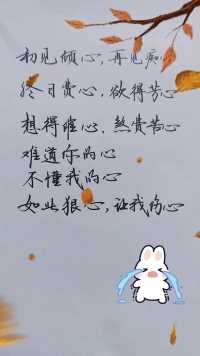 初见倾心,再见痴心
终日费心,欲得芳心
想得催心,煞费苦心
难道你的心
不懂我的心
如此狠心,让我伤心